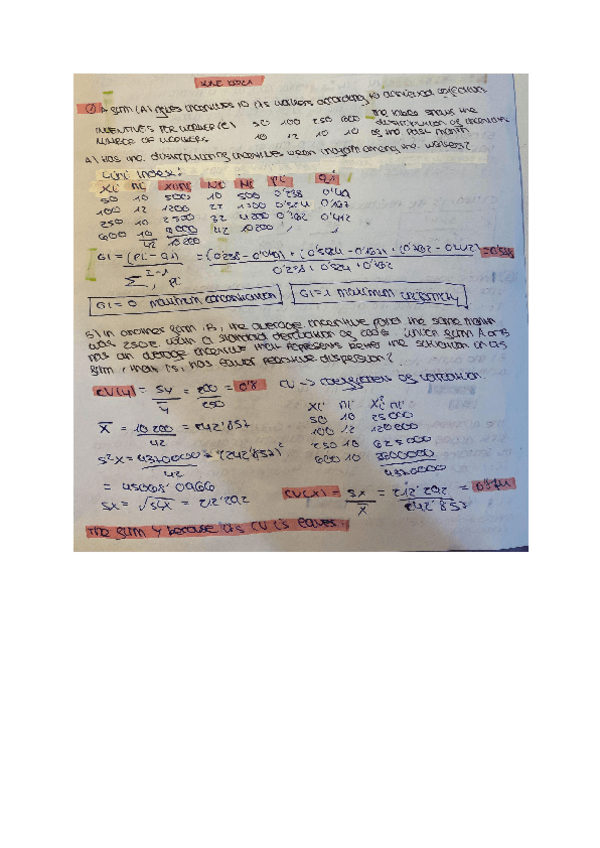 JUNE 2021
① A firm (A) gives incentives to its workers according to achieved objectives.
INCENTIVES PER WORKER (€) 50 100 250 600 The table shows the
NUMBER OF WORKERS 10 12 10 10 distribution of incentives
of the past month
A) Has the distribution of incentives been among the workers?
Gini Index:
Xi ni Xini Ni pi qi
50 10 500 10 500 0'238 0'049
100 12 1200 22 1700 0'524 0'167
250 10 2500 32 4200 0'762 0'412
600 10 6000 42 10200 / /
42 10200
GI = (Pi - qi) = (0'238 - 0'049) + (0'524 - 0'167) + (0'762 - 0'412)
Σ Pi 0'238 + 0'524 + 0'762
GI = 0 maximum concentration GI = 1 maximum
B) In another firm, B, the average incentive paid the same month
was 250€ with a standard deviation of 200€. Which firm A or B
has an average incentive that represents better the situation in its
firm, that is, has lower relative dispersion?
CV(y) = Sy = 200 = 0'8 CV → coefficient of variation
y 250
Xi ni Xi² ni
50 10 25000
X = 10200 = 242'857 100 12 120000
42
250 10 625000
S²x = 4370000 - (242'857)² 600 10 3600000
42 4370000
= 45068'0966
Sx = √S²x = 212'292 CV(X) = Sx = 212'292 = 0'874
X 242'857
The firm Y because its CV is lower.